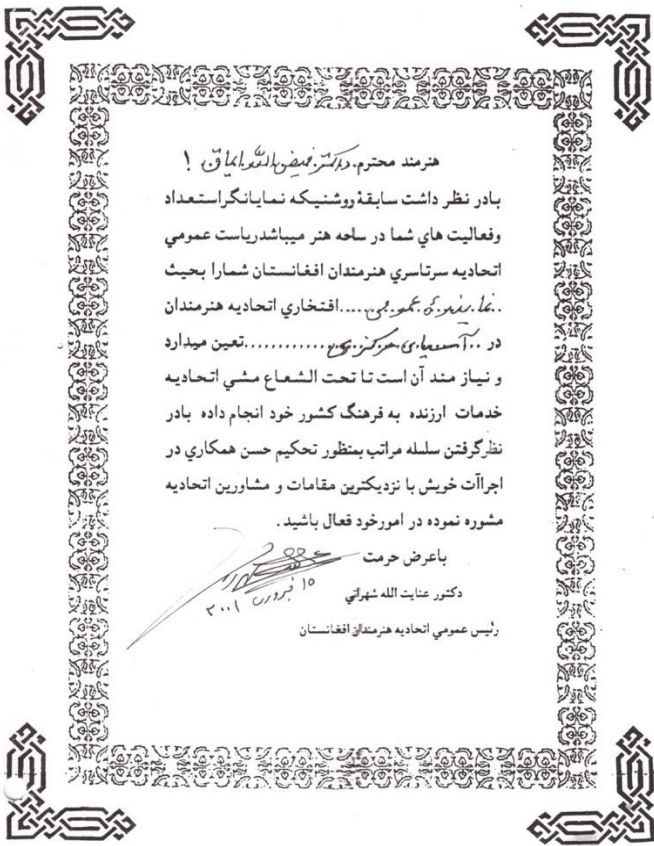 هنرمند محترم. داکتر. فیض الله ایماق. !
بادر نظر داشت سابقهٔ ووشنیکه نمایانگراستعداد
وفعالیت هاي شما در ساحه هنر میباشدریاست عمومي
اتحادیه سرتاسري هنرمندان افغانستان شمارا بحیث
..نمایندهٔ عمومی.....افتخاري اتحادیه هنرمندان
در ..آسیای مرکزی............تعین میدارد
و نیاز مند آن است تا تحت الشعاع مشي اتحادیه
خدمات ارزنده به فرهنگ کشور خود انجام داده بادر
نظرگرفتن سلسله مراتب بمنظور تحکیم حسن همکاري در
اجراآت خویش با نزدیکترین مقامات و مشاورین اتحادیه
مشوره نموده در امورخود فعال باشید.
باعرض حرمت
۱۵ فبروری ۲۰۰۱
دکتور عنایت الله شهراني
رئیس عمومي اتحادیه هنرمندان افغانستان